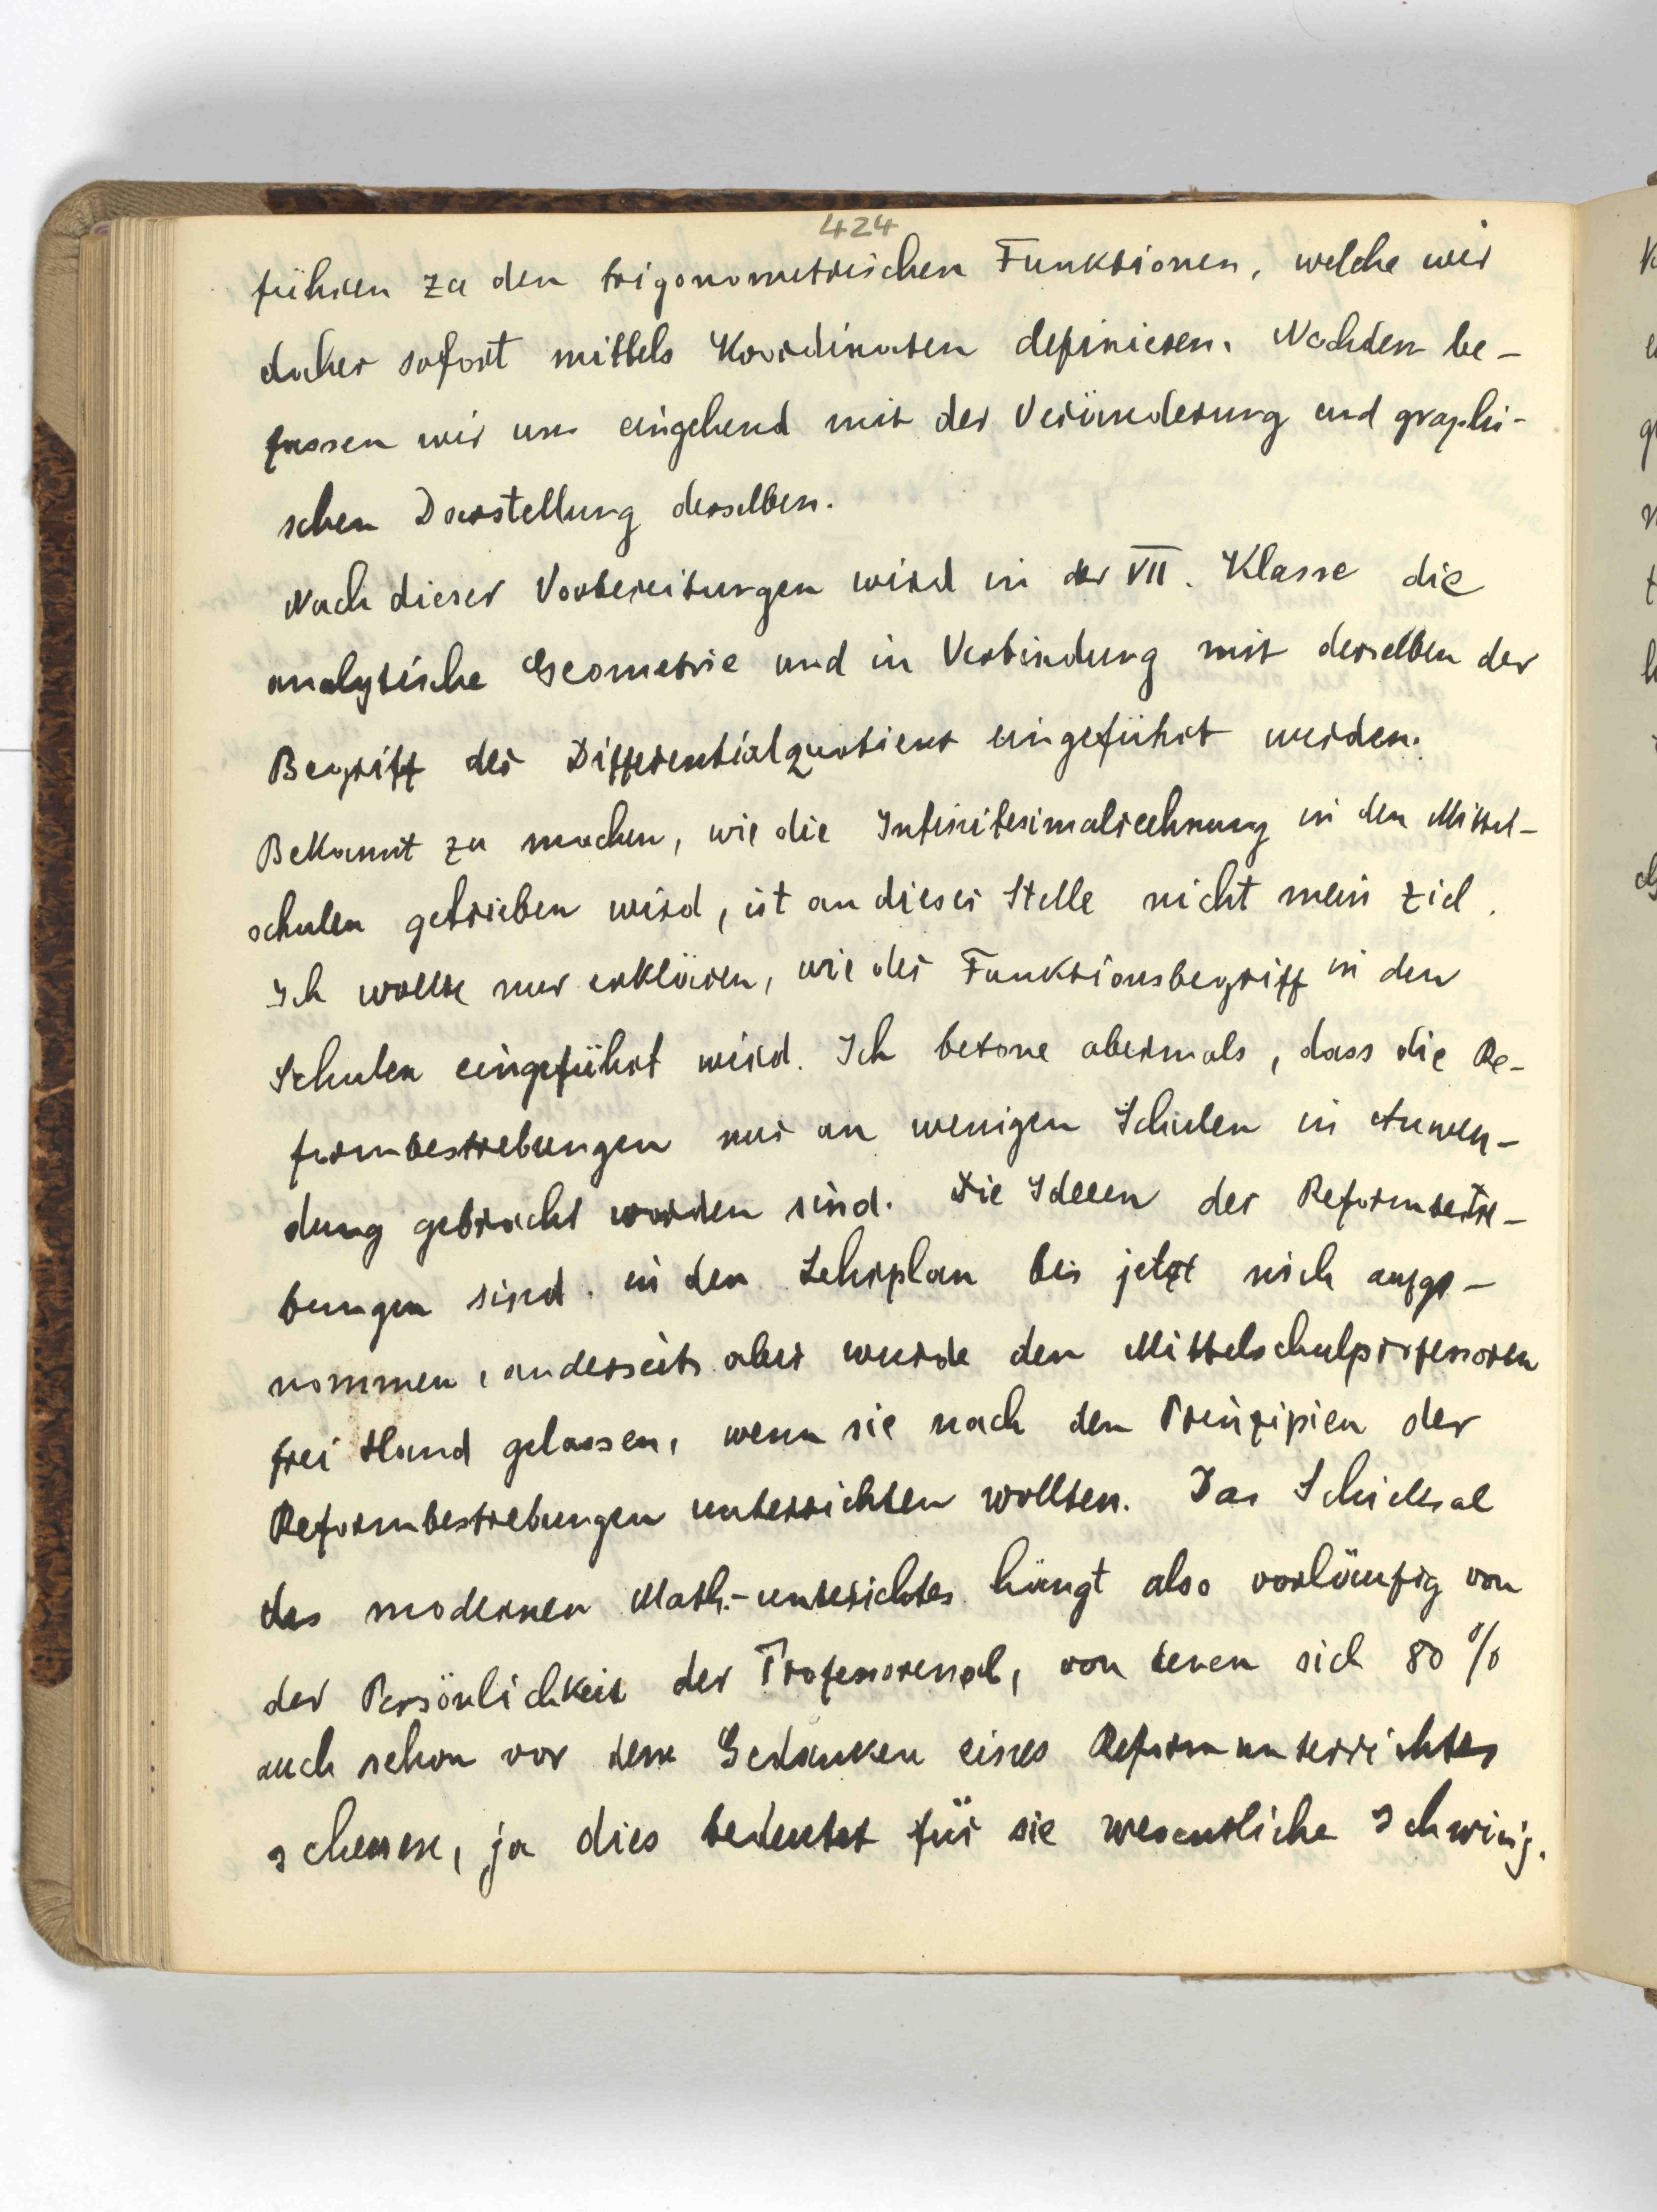 424
führen zu den trigonometrischen Funktionen, welche wir
daher sofort mittels Koordinaten definieren. Nachdem be-
fassen wir uns eingehend mit der Veränderung und graphi-
schen Darstellung derselben.
Nach dieser Vorbereitungen wird in der VII. Klasse die
analytische Geometrie und in Verbindung mit derselben der
Begriff der Differentialquotient eingeführt werden.
Bekannt zu machen, wie die Infinitesimalrechnung in den Mittel-
schulen getrieben wird, ist an dieser Stelle nicht mein Ziel.
Ich wollte nur erklären, wie der Funktionsbegriff in den
Schulen eingeführt wird. Ich betone abermals, dass die Re-
formbestrebungen nur an wenigen Schulen in Anwen-
dung gebracht worden sind. Die Ideen der Reformbestre-
bungen sind in den Lehrplan bis jetzt nich aufge-
nommen, anderseits aber wurde den Mittelschulprofessoren
frei Hand gelassen, wenn sie nach den Prinzipien der
Reformbestrebungen unterrichten wollten. Das Schicksal
des modernen Math.-unterichtes hängt also vorläufig von
der Persönlichkeit der Professoren ab, von denen sich 80 %
auch schon vor dem Gedanken eines Reformunterrichtes
scheuen, ja dies bedeutet für sie wesentliche Schwirig.